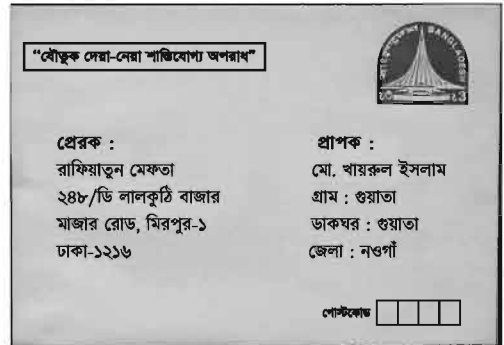 “যৌতুক দেয়া-নেয়া শাস্তিযোগ্য অপরাধ”
BANGLADESH
প্রেরক :
রাফিয়াতুন মেফতা
২৪৮/ডি লালকুঠি বাজার
মাজার রোড, মিরপুর-১
ঢাকা-১২১৬
প্রাপক :
মো. খায়রুল ইসলাম
গ্রাম : গুয়াতা
ডাকঘর : গুয়াতা
জেলা : নওগাঁ
পোস্টকোড